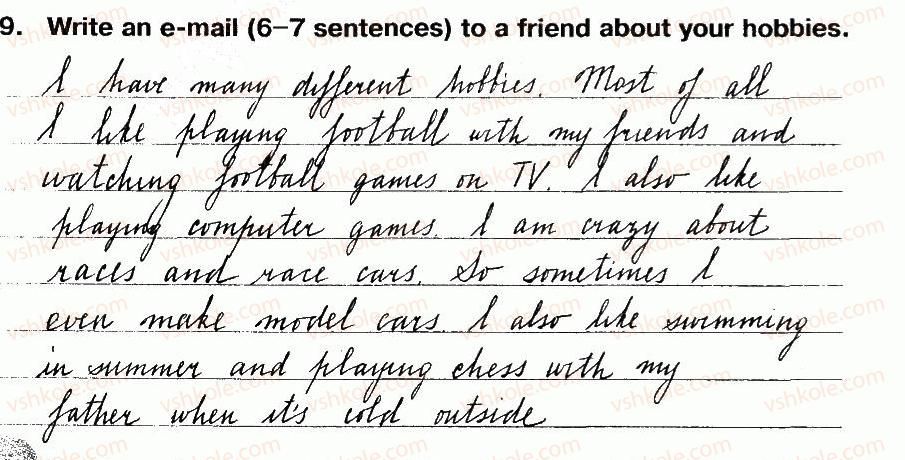 9. Write an e-mail (6–7 sentences) to a friend about your hobbies.
I have many different hobbies. Most of all
I like playing football with my friends and
watching football games on TV. I also like
playing computer games. I am crazy about
races and race cars. So sometimes I
even make model cars. I also like swimming
in summer and playing chess with my
father when it's cold outside